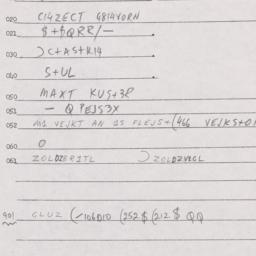 020 C14ZECT G814VORN
021 $+$QRR/—
030 )C+A5+R14
040 S+UL
050 MAXT KUS+38
051 — Q PEJS3X
052 M1 VEJKT AN 15 FLEJS+(466 VEJKS+O
060 O
061 ZOLDZER1TL )ZOLDZVEGL
901 GLUZ (/106D10 (252$(212$ QQ